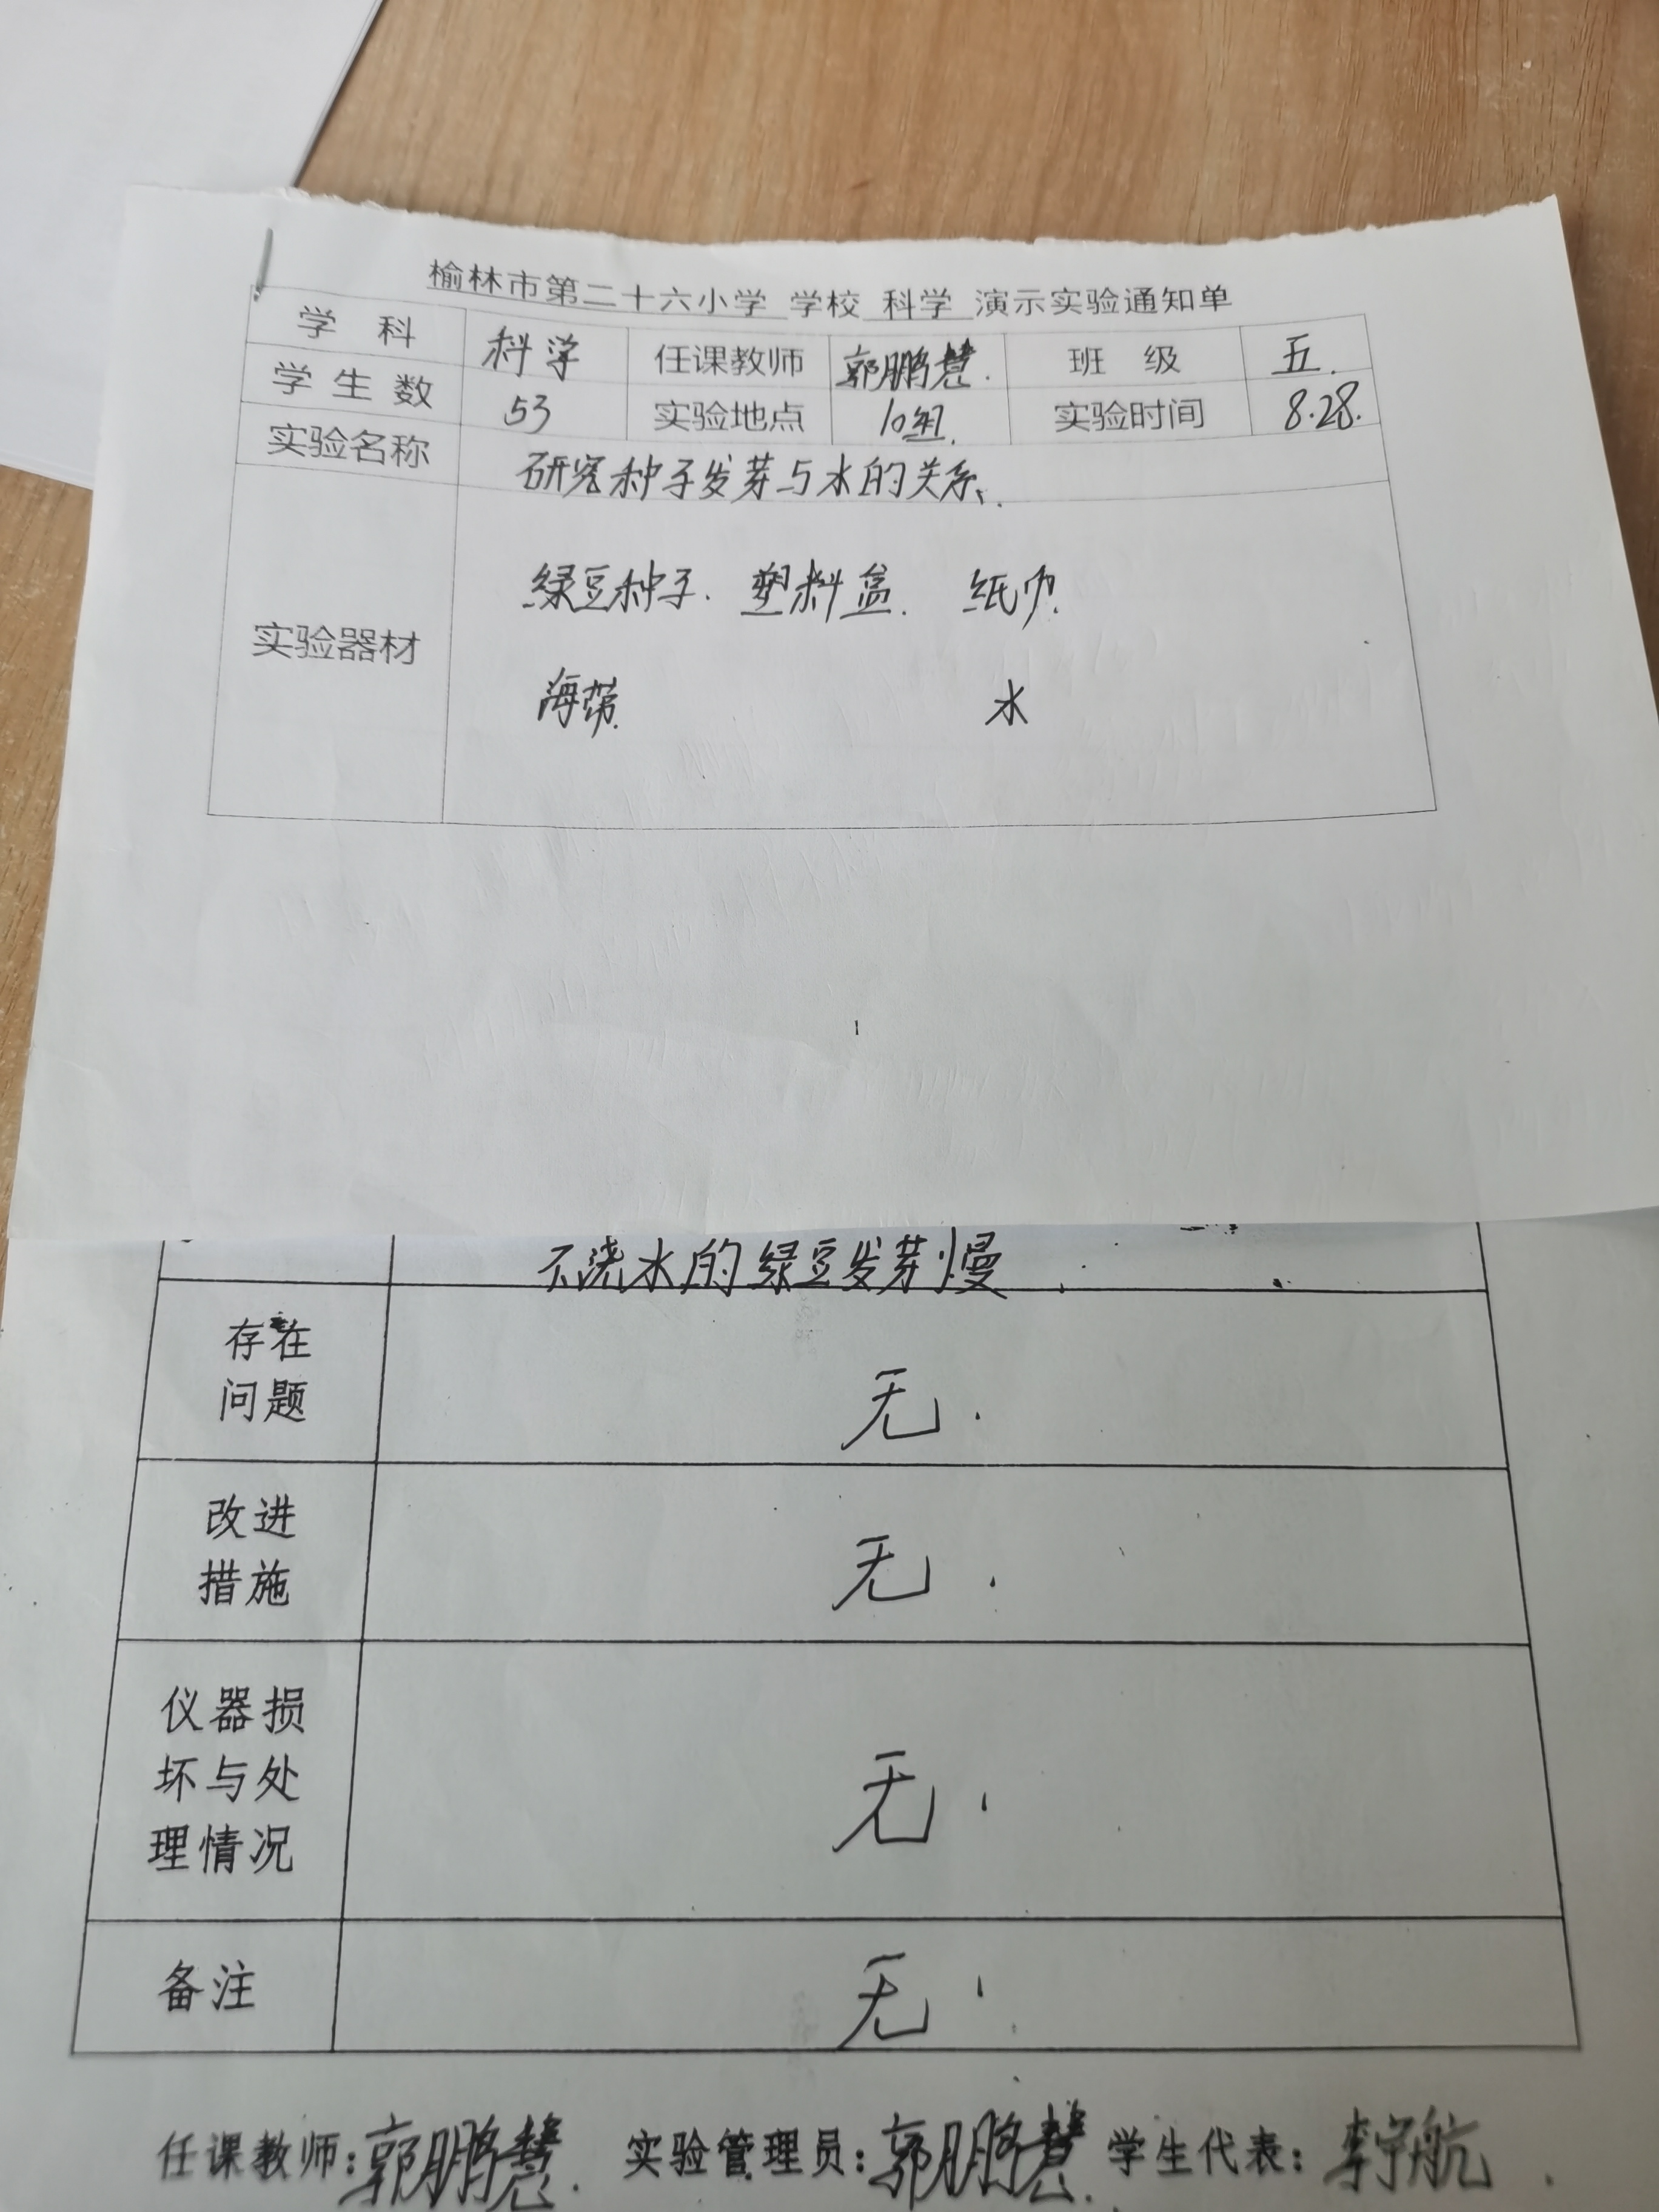 榆林市第二十六小学 学校 科学 演示实验通知单
学科 科学 任课教师 郭鹏慧. 班级 五.
学生数 53 实验地点 10组. 实验时间 8.28.
实验名称 研究种子发芽与水的关系.
实验器材 绿豆种子. 塑料盒. 纸巾.
海带. 水
1
不浇水的绿豆发芽慢
存在
问题 无.
改进
措施 无.
仪器损
坏与处
理情况 无.
备注 无.
任课教师:郭鹏慧. 实验管理员:郭鹏慧. 学生代表:李宇航.